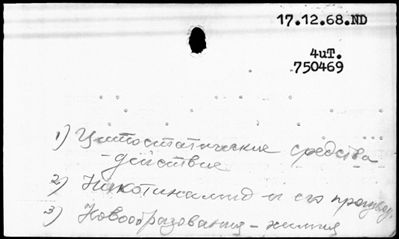 17.12.68.ND
4иT.
750469
1) Цитостатические средства
- действие
2) Никотинамид и его производ.
3) Новообразования - химия